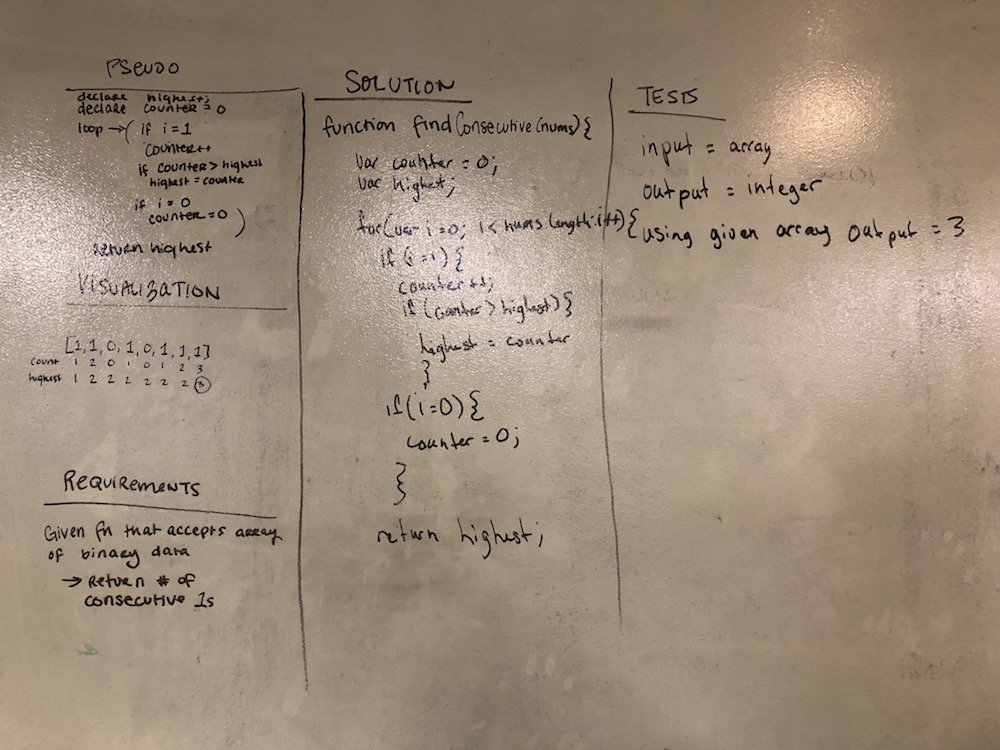 PSEUDO
declare highest;
declare counter = 0
loop → ( if i = 1
counter++
if counter > highest
highest = counter
if i = 0
counter = 0 )
return highest
VISUALIZATION
[1,1,0,1,0,1,1,1]
count 1 2 0 1 0 1 2 3
highest 1 2 2 2 2 2 2 3
REQUIREMENTS
Given fn that accepts array
of binary data
→ Return # of
consecutive 1s
SOLUTION
function findConsecutive(nums){
var counter = 0;
var highest;
for(var i=0; i< nums.length; i++){
if(i=1){
counter++;
if(counter > highest){
highest = counter
}
if(i=0){
counter = 0;
}
return highest;
TESTS
input = array
output = integer
using given array output = 3